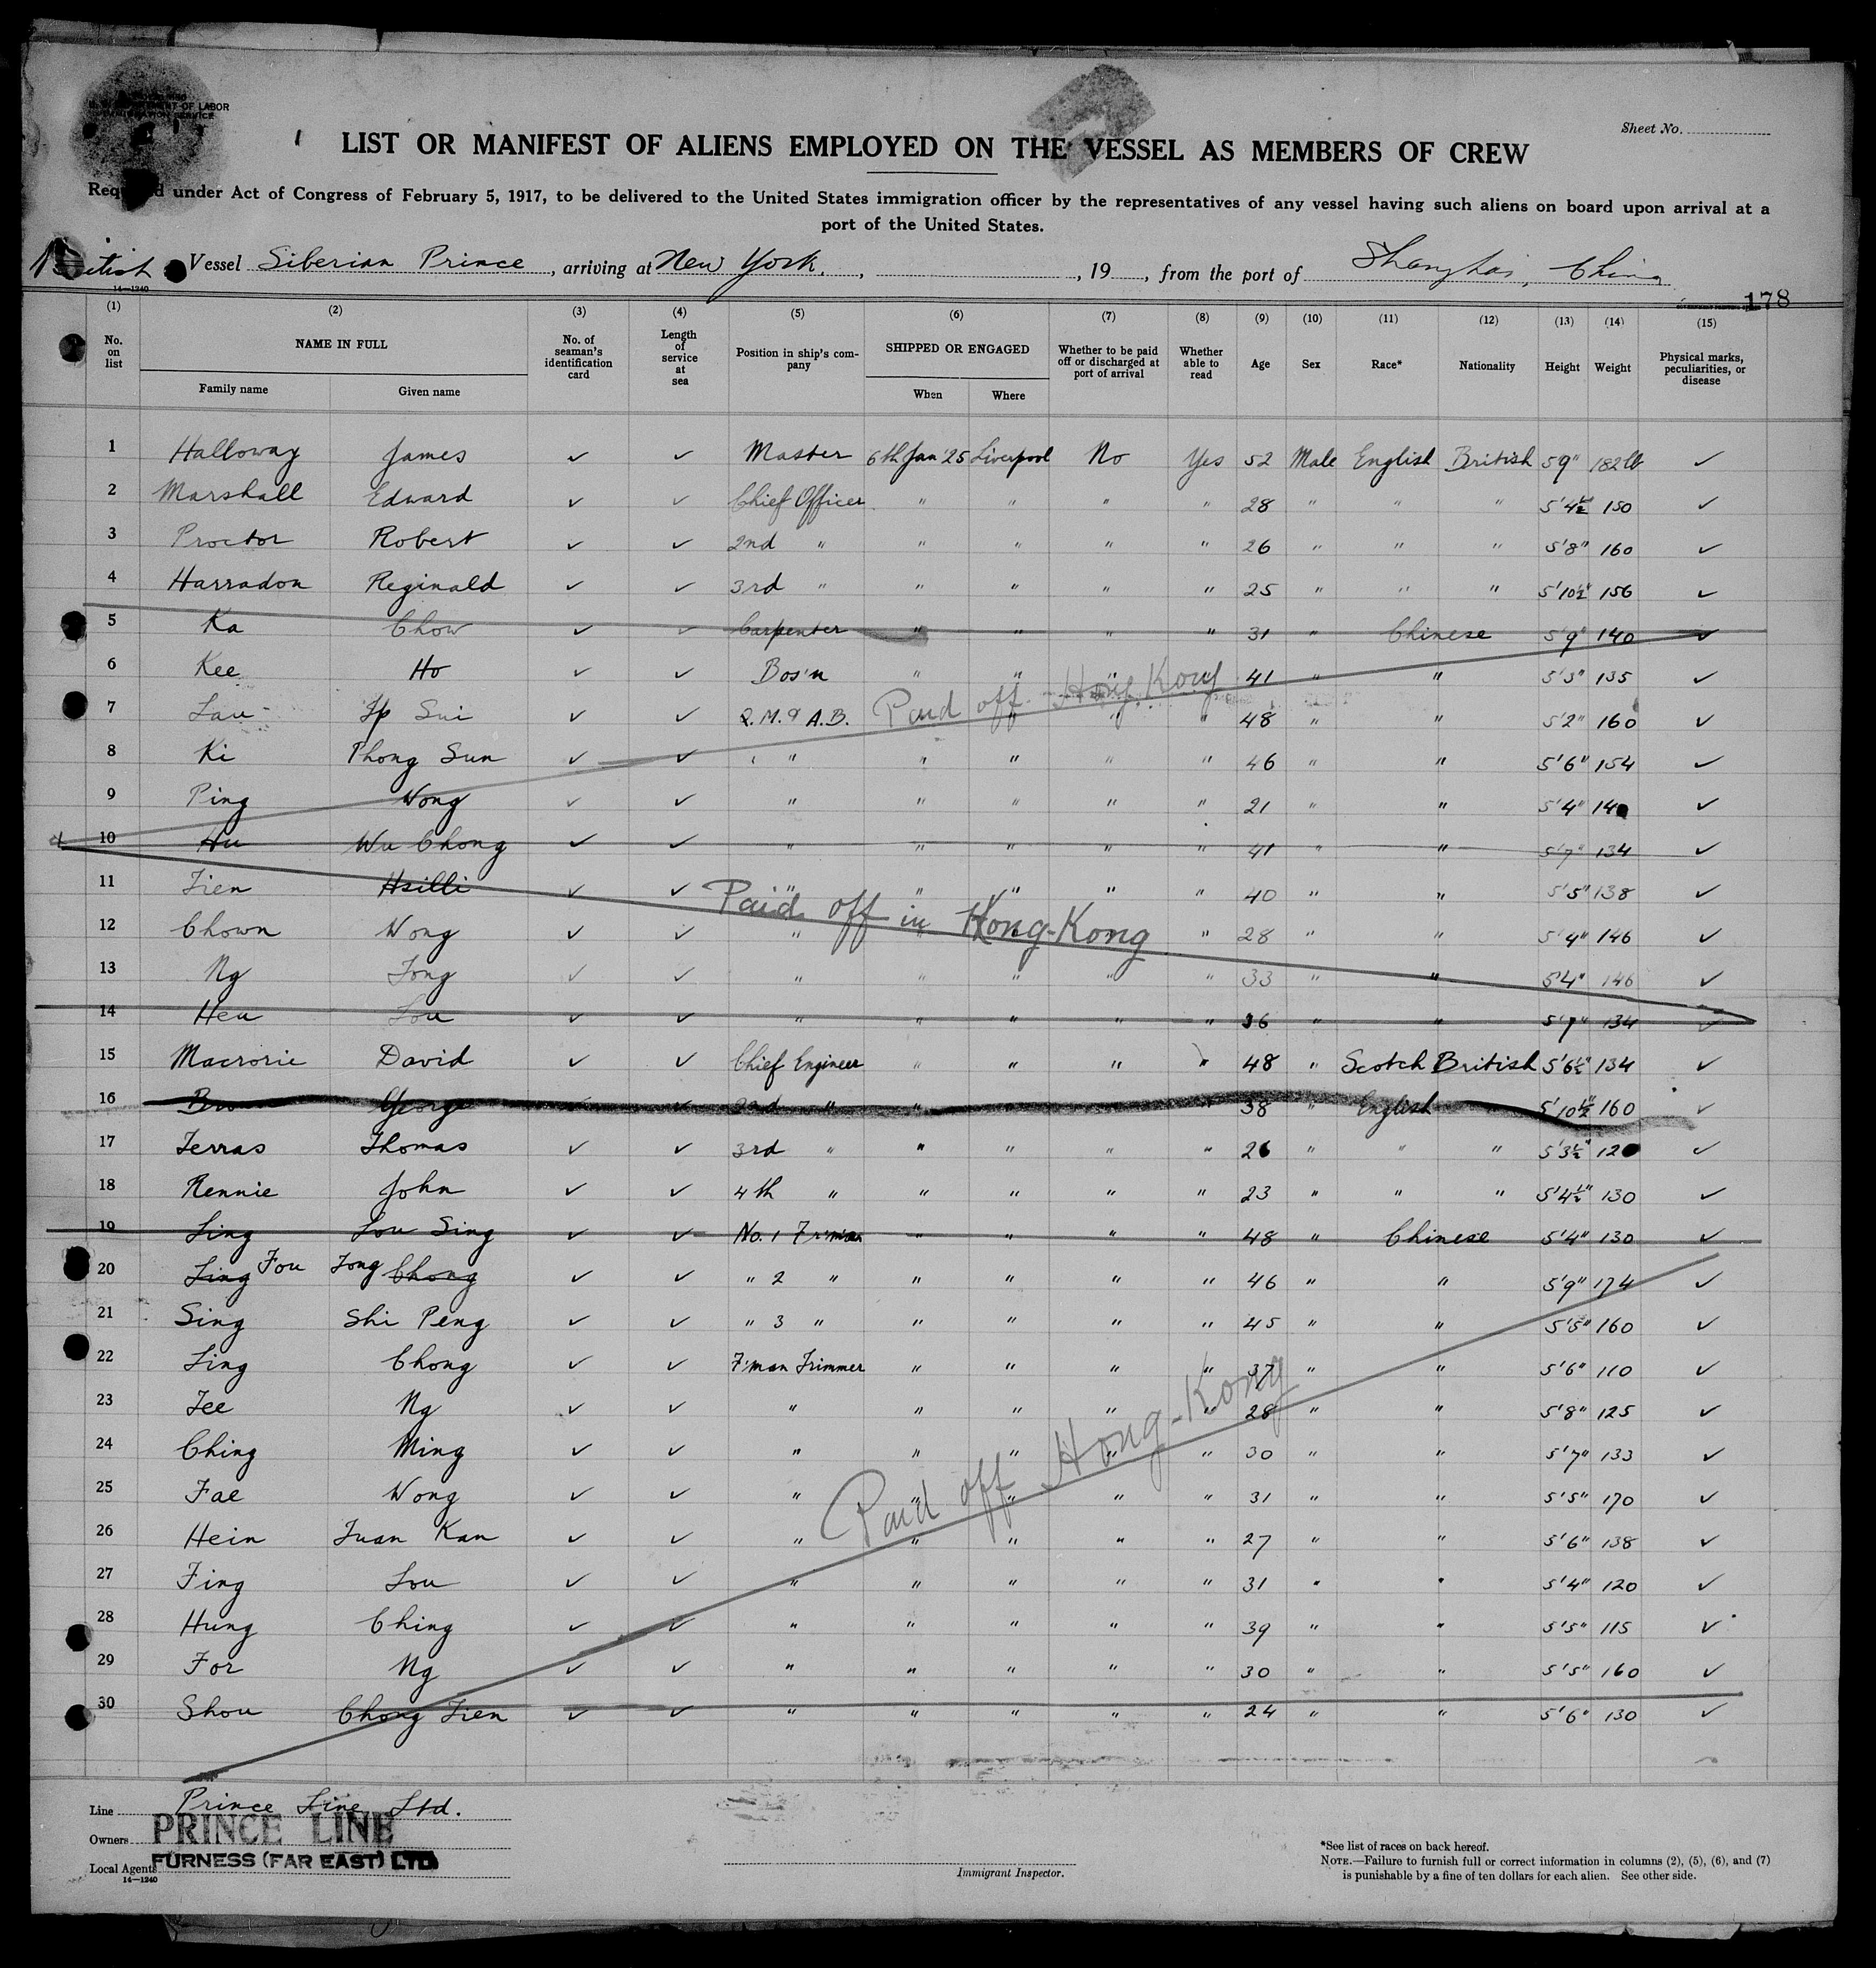 Sheet No.
LIST OR MANIFEST OF ALIENS EMPLOYED ON THE VESSEL AS MEMBERS OF CREW
under Act of Congress of February 5, 1917, to be delivered to the United States immigration officer by the representatives of any vessel having such aliens on board upon arrival at a
port of the United States.
British Vessel Siberian Prince, arriving at New York, , 19 , from the port of Shanghai, China
14—1240
178
(1) (2) (3) (4) (5) (6) (7) (8) (9) (10) (11) (12) (13) (14) (15)
No. on list NAME IN FULL No. of seaman's identification card Length of service at sea Position in ship's company SHIPPED OR ENGAGED Whether to be paid off or discharged at port of arrival Whether able to read Age Sex Race* Nationality Height Weight Physical marks, peculiarities, or disease
Family name Given name When Where
1 Halloway James ✓ ✓ Master 6th Jan '25 Liverpool No Yes 52 Male English British 5'9" 182lb ✓
2 Marshall Edward ✓ ✓ Chief Officer " " " " 28 " " " 5'4½ 150 ✓
3 Proctor Robert ✓ ✓ 2nd " " " " " 26 " " " 5'8" 160 ✓
4 Harradon Reginald ✓ ✓ 3rd " " " " " 25 " " " 5'10½" 156 ✓
5 Ka Chow ✓ ✓ Carpenter " " " " 31 " Chinese 5'9" 140 ✓
6 Kee Ho ✓ ✓ Bos'n " " " " 41 " " 5'3" 135 ✓
Paid off Hong Kong
7 Lau Ip Sui ✓ ✓ Q.M. & A.B. " " " 48 " " 5'2" 160 ✓
8 Ki Thong Sun ✓ ✓ " " " " " " 46 " " 5'6" 154 ✓
9 Ping Wong ✓ ✓ " " " " " 21 " " 5'4" 140 ✓
10 Hu Wu Chong ✓ ✓ " " " " " 41 " " 5'7" 134 ✓
11 Tien Hsilli ✓ ✓ " " " " " 40 " " 5'5" 138 ✓
Paid off in Hong-Kong
12 Chown Wong ✓ ✓ " " 28 " " 5'4" 146 ✓
13 Ng Tong ✓ ✓ " " " " " 33 " " 5'4" 146 ✓
14 Heu Lou ✓ ✓ " " " " " 36 " " 5'7" 134 ✓
15 Macrorie David ✓ ✓ Chief Engineer " " " " 48 " Scotch British 5'6½" 134 ✓
16 George ✓ ✓ 2nd " " " 38 " English 5'10½" 160 ✓
17 Terras Thomas ✓ ✓ 3rd " " " " " 26 " " " 5'3½" 120 ✓
18 Rennie John ✓ ✓ 4th " " " " " 23 " " " 5'4½" 130 ✓
19 Ling Lou Sing ✓ ✓ No. 1 F'rman " " " " 48 " Chinese 5'4" 130 ✓
20 Ling Fou Tong Chong ✓ ✓ " 2 " " " " " 46 " " 5'9" 174 ✓
21 Sing Shi Peng ✓ ✓ " 3 " " " " " 45 " " 5'5" 160 ✓
22 Ling Chong ✓ ✓ F'man Trimmer " " " " 37 " " 5'6" 110 ✓
23 Tee Ng ✓ ✓ " " " " " 28 " " 5'8" 125 ✓
24 Ching Ming ✓ ✓ " " " " " 30 " " 5'7" 133 ✓
Paid off Hong-Kong
25 Fae Wong ✓ ✓ " " " " " 31 " " 5'5" 170 ✓
26 Hein Tuan Kan ✓ ✓ " " " " " 27 " " 5'6" 138 ✓
27 Fing Lou ✓ ✓ " " " " " 31 " " 5'4" 120 ✓
28 Hung Ching ✓ ✓ " " " " " 39 " " 5'5" 115 ✓
29 For Ng ✓ ✓ " " " " " 30 " " 5'5" 160 ✓
30 Shou Chong Tien ✓ ✓ " " " " " 24 " " 5'6" 130 ✓
Line Prince Line Ltd.
Owners PRINCE LINE
Local Agents FURNESS (FAR EAST) LTD
14—1240
Immigrant Inspector.
*See list of races on back hereof.
NOTE.—Failure to furnish full or correct information in columns (2), (5), (6), and (7)
is punishable by a fine of ten dollars for each alien. See other side.